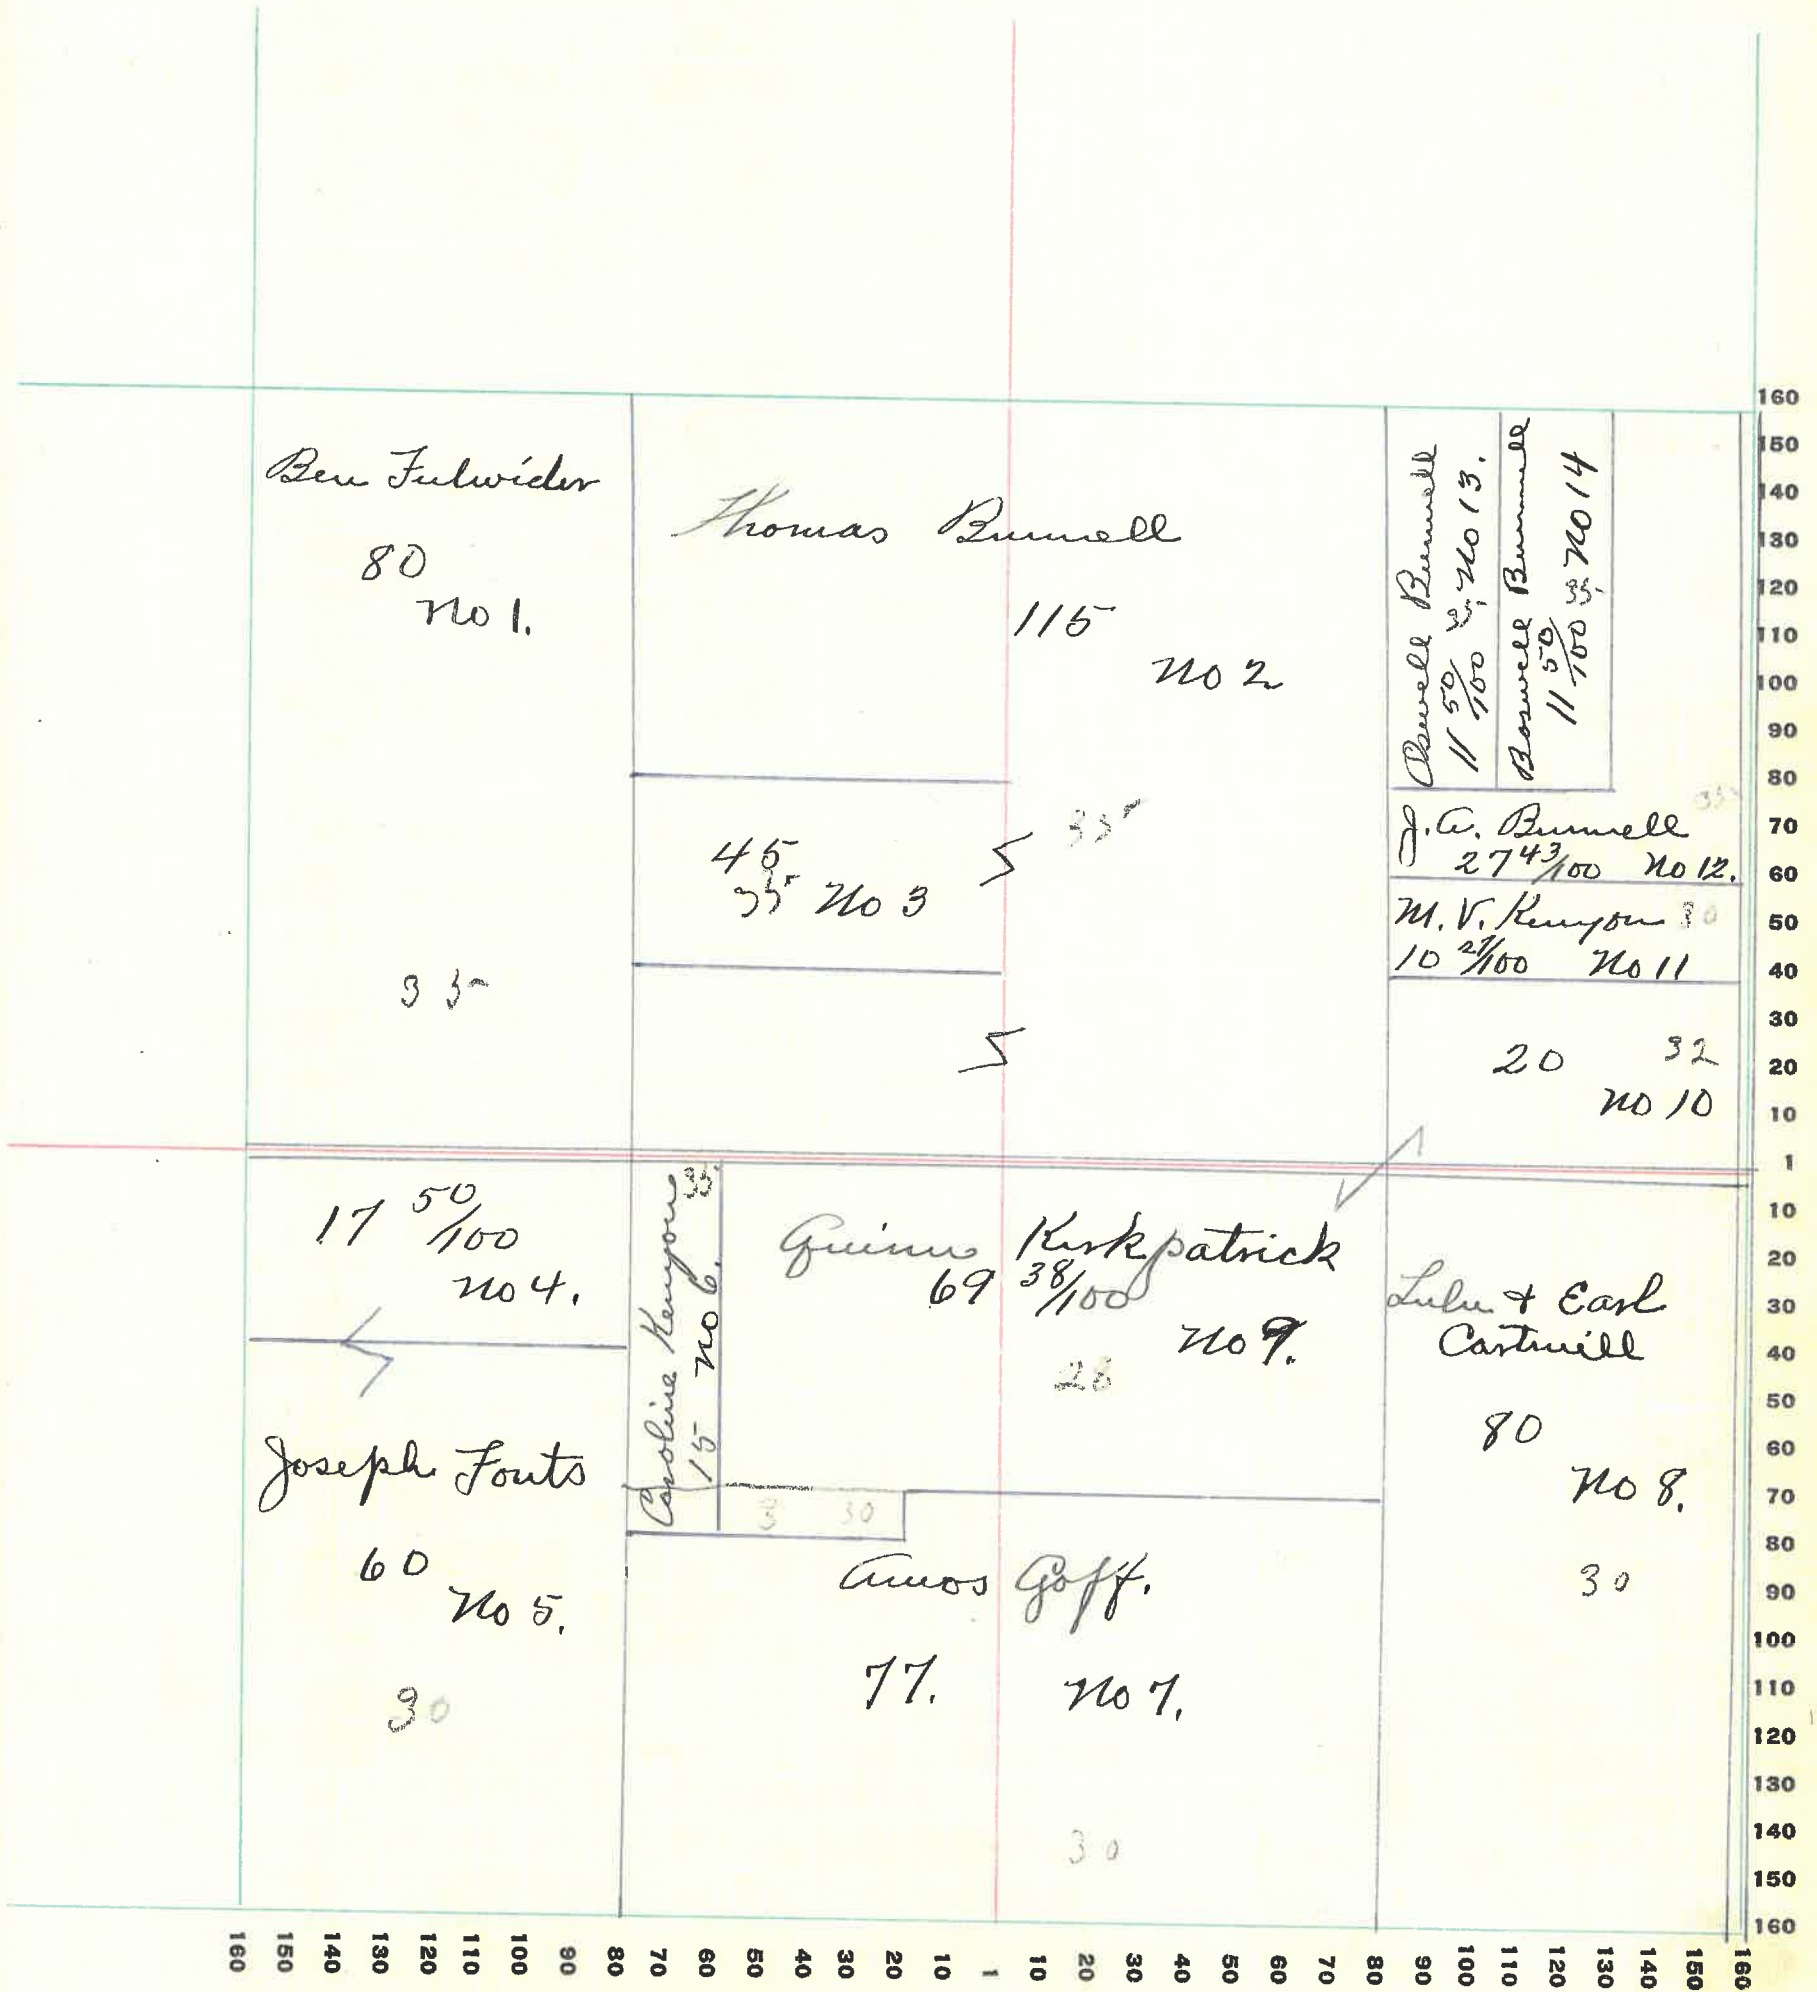 Ben Fulwider
80
No 1.
35
Thomas Bunnell
115
No 2
35
45
35 No 3
Oswell Bunnell
11 50/100 No 13.
Boswell Bunnell
11 50/100 35. No 14
35
J. A. Bunnell
27 43/100 No 12.
M. V. Kenyon 30
10 27/100 No 11
20 32
No 10
17 50/100
No 4.
Joseph Fouts
60
No 5.
30
Caroline Kenyon 35.
15 No 6.
Kirkpatrick
69 38/100
No 9.
28
3 30
Amos Goff.
77. No 7.
30
Lulu + Earl
80
No 8.
30
160
150
140
130
120
110
100
90
80
70
60
50
40
30
20
10
1
10
20
30
40
50
60
70
80
90
100
110
120
130
140
150
160
160 150 140 130 120 110 100 90 80 70 60 50 40 30 20 10 1 10 20 30 40 50 60 70 80 90 100 110 120 130 140 150 160